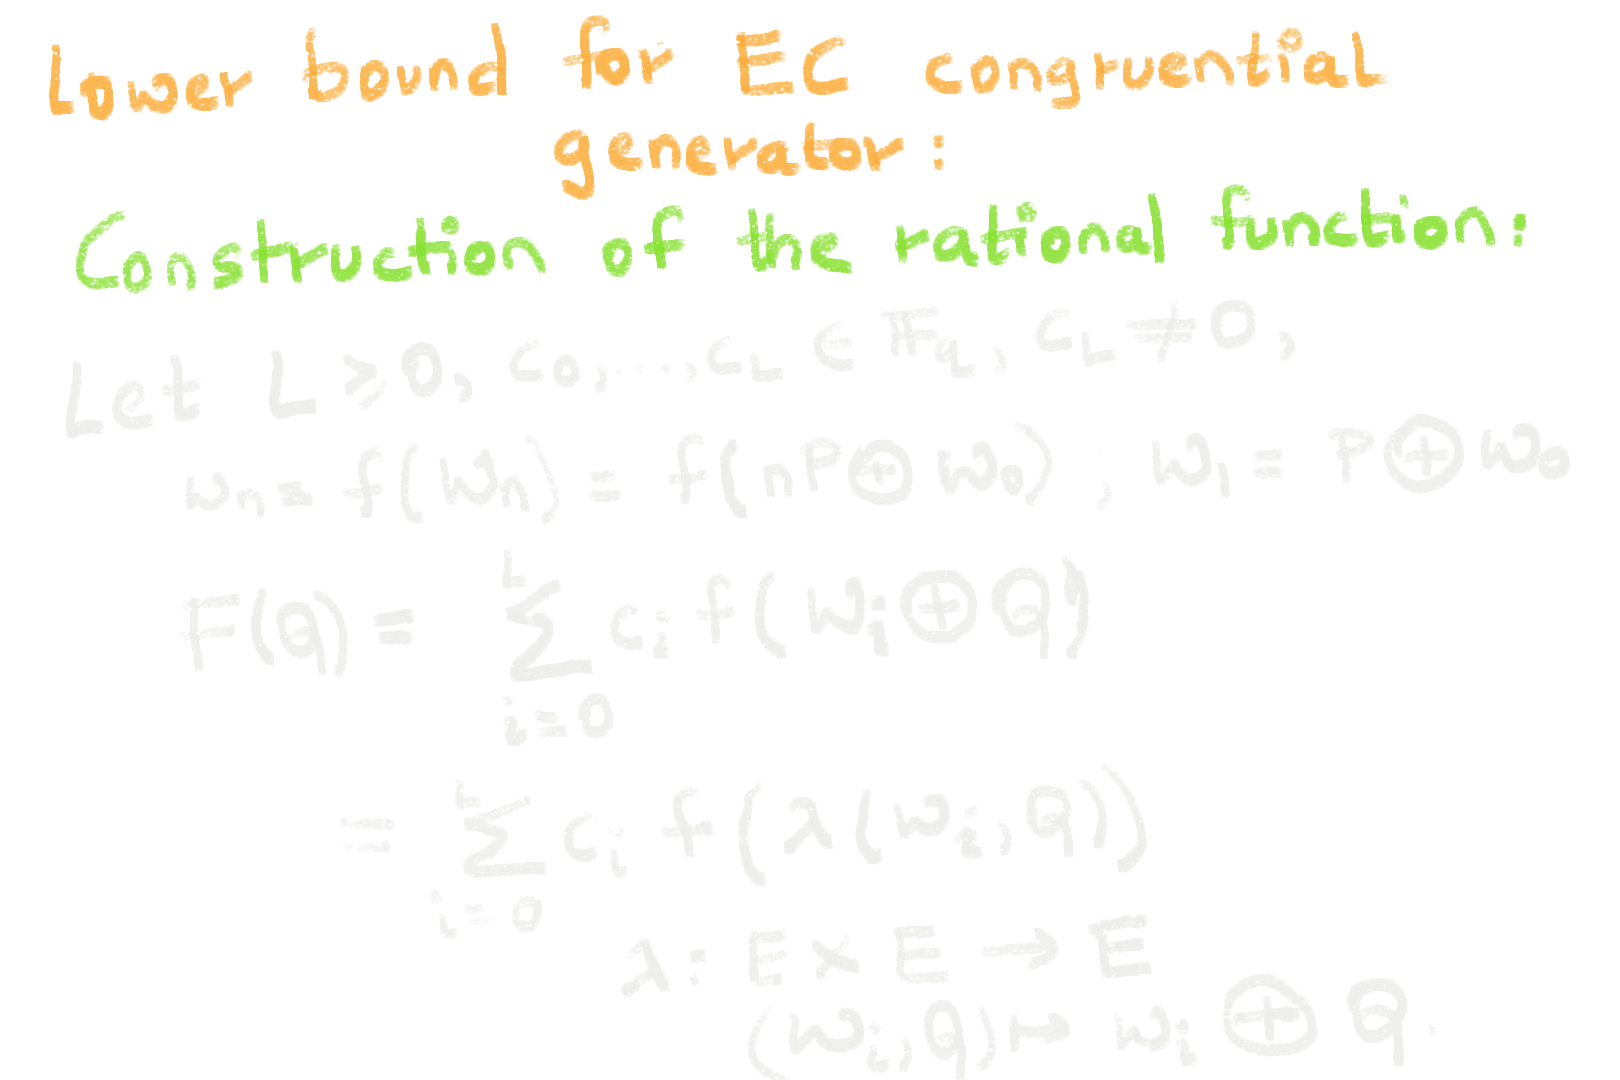 Lower bound for EC congruential
generator:
Construction of the rational function:
Let L ⩾ 0, c₀,...,c_L ∈ 𝔽_q, c_L ≠ 0,
w_n = f(W_n) = f(nP ⊕ W₀), W₁ = P ⊕ W₀
F(Q) = ∑_{i=0}^{L} c_i f(W_i ⊕ Q)
= ∑_{i=0}^{L} c_i f(λ(W_i, Q))
λ: E × E → E
(W_i, Q) ↦ W_i ⊕ Q.